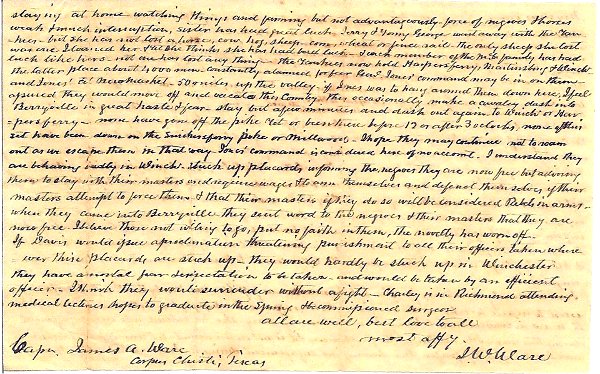 staying at home watching things and farming but not advantageously, force of negroes & horses
weak & much interruption, sister has had great luck, Jerry & Young George went away with the Yan-
-kees - but she has not lost a horse, cow, hog, sheep, corn, wheat or fence rail. The only sheep she lost
was one I loaned her & yet she thinks she has had hard luck - Each member of the family has had
luck like hers - not one has lost any thing - The Yankees now hold Harpers ferry, Martinsburg & Winchr
the latter place about 4000 men - constantly alarmed for fear Genl Jones' command may be on them
and Jones' at New Market 50 miles up the valley. if Jones was to hang around them down here, I feel
assured they would move off and vacate this County. They occasionally make a cavalry dash into
Berryville in great haste & fear stay but a few minutes and dash out again to Winchr or Har-
-persferry - none have gone off the pike Yet or been here before 12 or after 3 oclock, none of them
yet have been down on the Smithsferry Pike or Millwood - I hope they may continue not to roam
out as we escape them in that way. Jones' command is considered here of no account. I understand they
are behaving badly in Winchr - stuck up placards informing the negroes they are now free but advising
them to stay with their masters and require wages & to arm themselves and defend themselves if their
masters attempt to force them & that their masters if they do so will be considered Rebels in arms -
when they came into Berryville they sent word to the negroes & their masters that they are
now free. I believe those not willing to go, put no faith in them, the novelty has worn off -
If Davis would issue a proclamation threatening punishment to all their officers taken where
ever their placards are stuck up - they would hardly be stuck up in Winchester
they have a mortal fear & expectation to be taken - and would be taken by an efficient
officer - I think they would surrender without a fight - Charley is in Richmond attending
medical lectures hopes to graduate in the Spring & be commissioned surgeon
all are well, best love to all
most affy
J. W. Ware
Capn James A. Ware
Corpus Christi, Texas